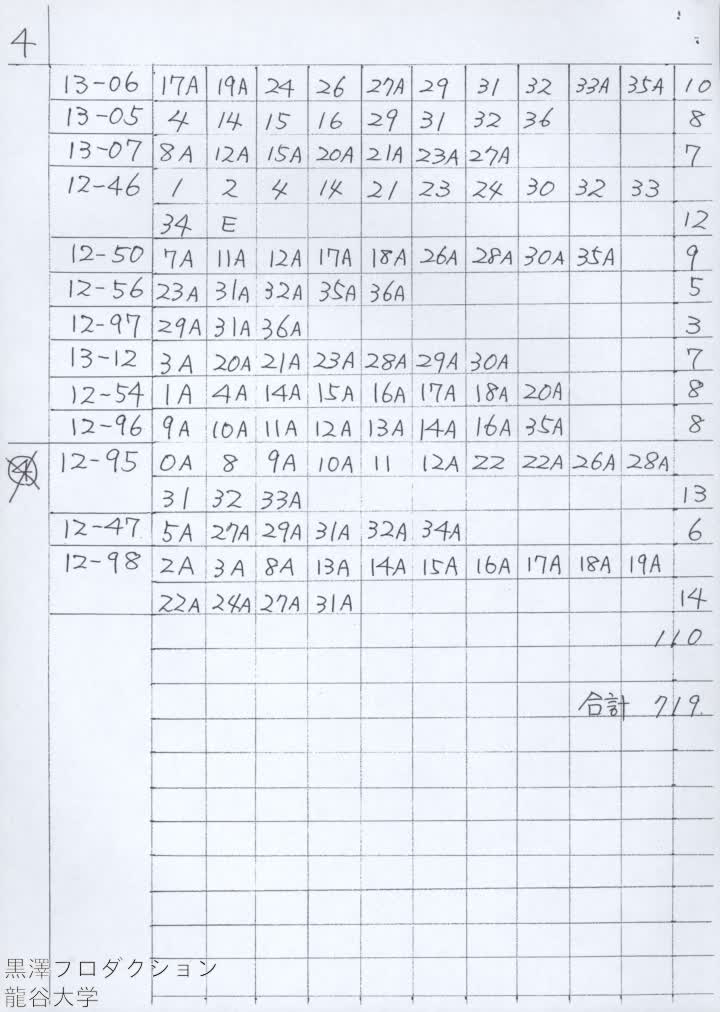 4
13-06 17A 19A 24 26 27A 29 31 32 33A 35A 10
13-05 4 14 15 16 29 31 32 36 8
13-07 8A 12A 15A 20A 21A 23A 27A 7
12-46 1 2 4 14 21 23 24 30 32 33
34 E 12
12-50 7A 11A 12A 17A 18A 26A 28A 30A 35A 9
12-56 23A 31A 32A 35A 36A 5
12-97 29A 31A 36A 3
13-12 3A 20A 21A 23A 28A 29A 30A 7
12-54 1A 4A 14A 15A 16A 17A 18A 20A 8
12-96 9A 10A 11A 12A 13A 14A 16A 35A 8
4 12-95 0A 8 9A 10A 11 12A 22 22A 26A 28A
31 32 33A 13
12-47 5A 27A 29A 31A 32A 34A 6
12-98 2A 3A 8A 13A 14A 15A 16A 17A 18A 19A
22A 24A 27A 31A 14
110
合計 719
黒澤プロダクション
龍谷大学